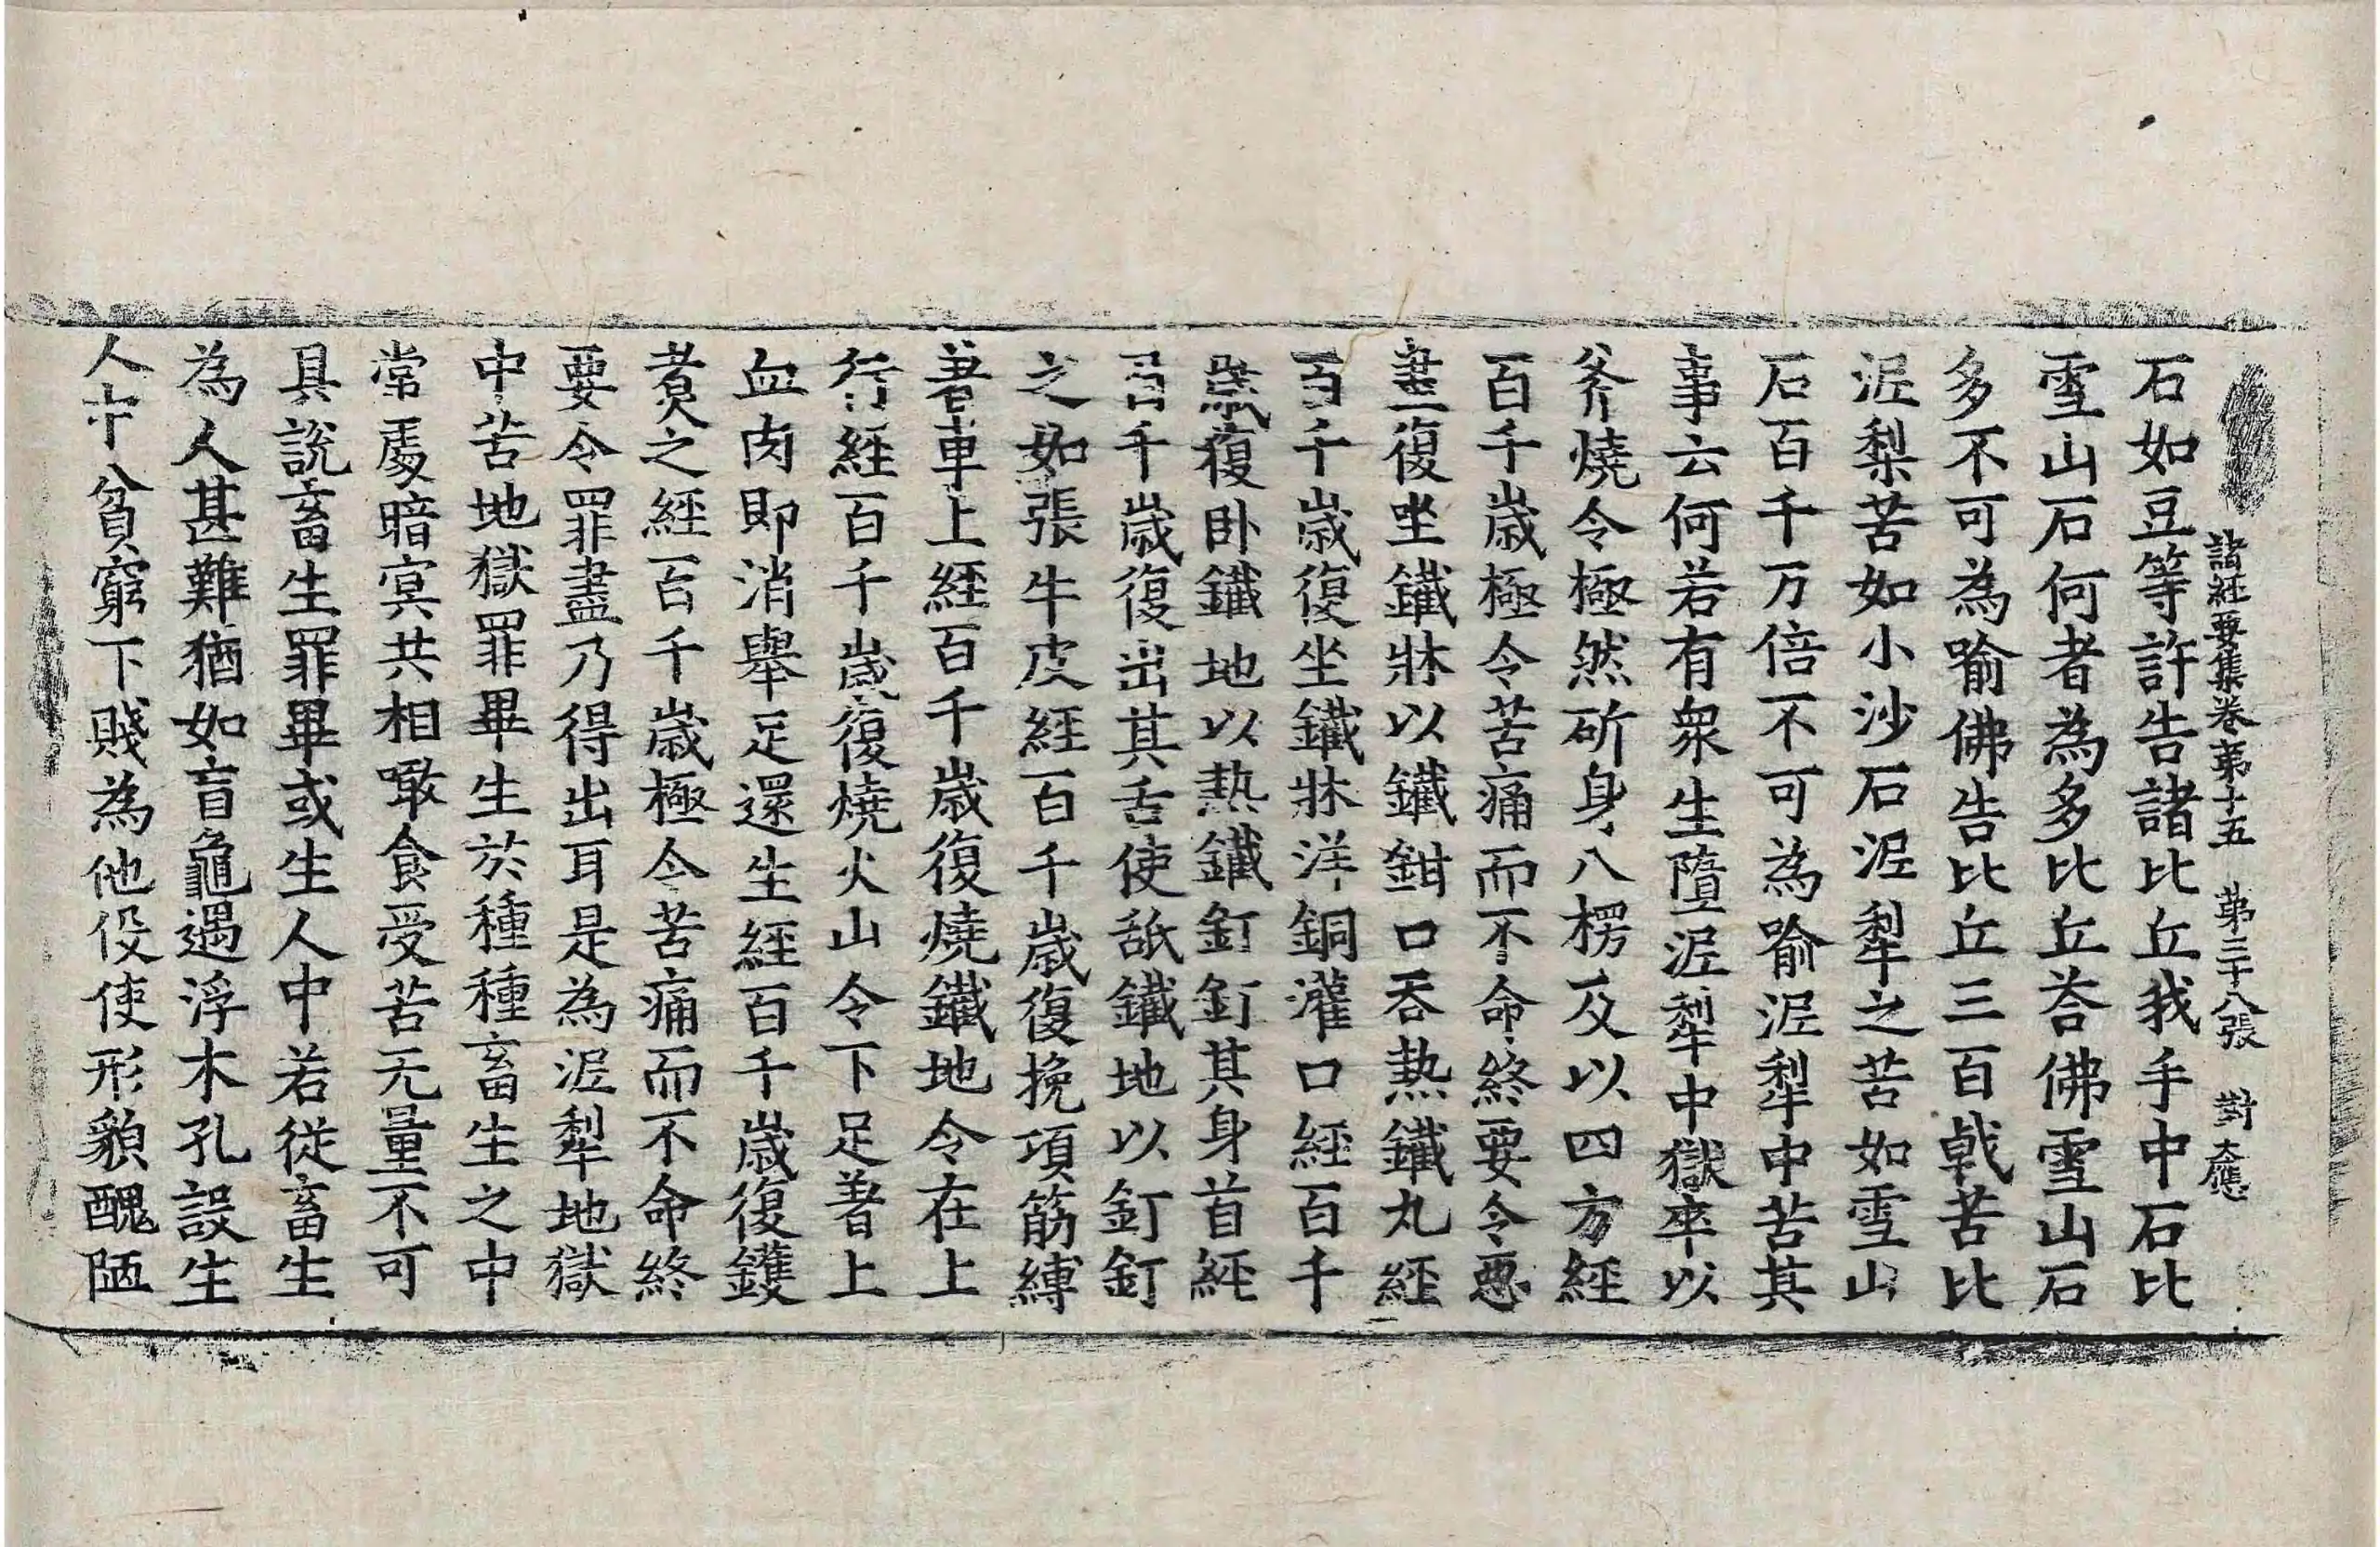 諸經要集卷苐十五　苐三十八張　對　大應
石如豆等許告諸比丘我手中石比
雪山石何者為多比丘荅佛雪山石
多不可為喻佛告比丘三百戟苦比
泥梨苦如小沙石泥犁之苦如雪山
石百千万倍不可為喻泥犁中苦其
事云何若有衆生墮泥犁中獄卒以
斧燒令極然斫身八楞及以四方經
百千歲極令苦痛而不命終要令惡
盡復坐鐵牀以鐵鉗口吞熱鐵丸經
百千歲復坐鐵牀洋銅灌口經百千
歲復卧鐵地以熱鐵釘釘其身首經
百千歲復出其舌使舐鐵地以釘釘
之如張牛皮經百千歲復挽項筋縛
著車上經百千歲復燒鐵地令在上
行經百千歲復燒火山令下足著上
血肉即消舉足還生經百千歲復鑊
煮之經百千歲極令苦痛而不命終
要令罪盡乃得出耳是為泥犁地獄
中苦地獄罪畢生於種種畜生之中
常處暗冥共相噉食受苦无量不可
具說畜生罪畢或生人中若從畜生
為人甚難猶如盲龜遇浮木孔設生
人中貧窮下賤為他伇使形貌醜陋